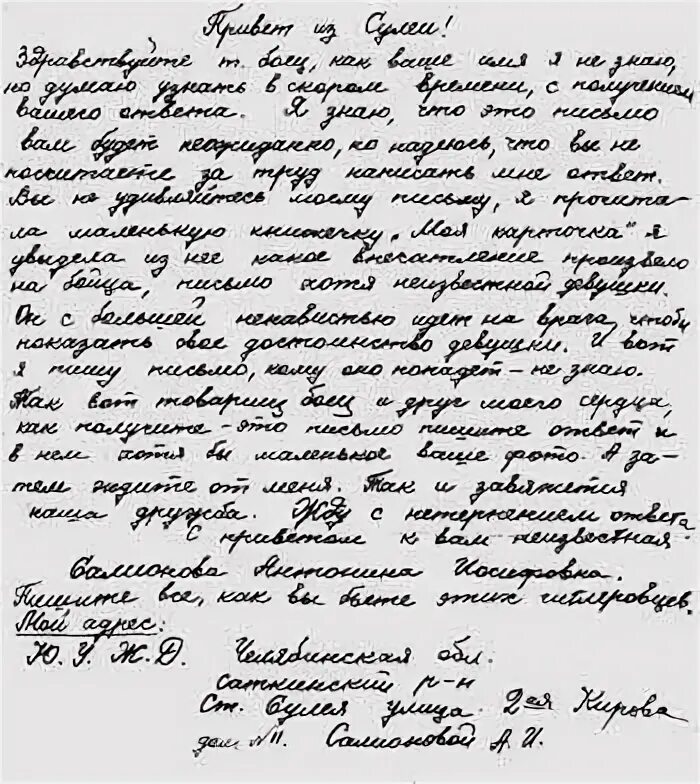 Привет из Сулеи!
Здравствуйте т. боец, как ваше имя я не знаю,
но думаю узнать в скором времени, с получением
вашего ответа. Я знаю, что это письмо
вам будет неожиданно, но надеюсь, что вы не
посчитаете за труд написать мне ответ.
Вы не удивляйтесь моему письму, я прочита-
ла маленькую книжечку „Моя карточка" я
увидела из нее какое впечатление произвело
на бойца, письмо хотя неизвестной девушки.
Он с большей ненавистью идет на врага, чтобы
показать свое достоинство девушки. И вот
я пишу письмо, кому оно попадет – не знаю.
Так вот товарищ боец и друг моего сердца,
как получите – это письмо пишите ответ и
в нем хотя бы маленькое ваше фото. А за-
тем ждите от меня. Так и завяжется
наша дружба. Жду с нетерпением ответа
С приветом к вам неизвестная
Салионова Антонина Иосифовна.
Пишите все, как вы бьете этих гитлеровцев.
Мой адрес:
Ю. У. Ж. Д. Челябинская обл.
Саткинский р-н
Ст. Сулея улица 2-ая Кирова
дом № 11. Салионовой А. И.